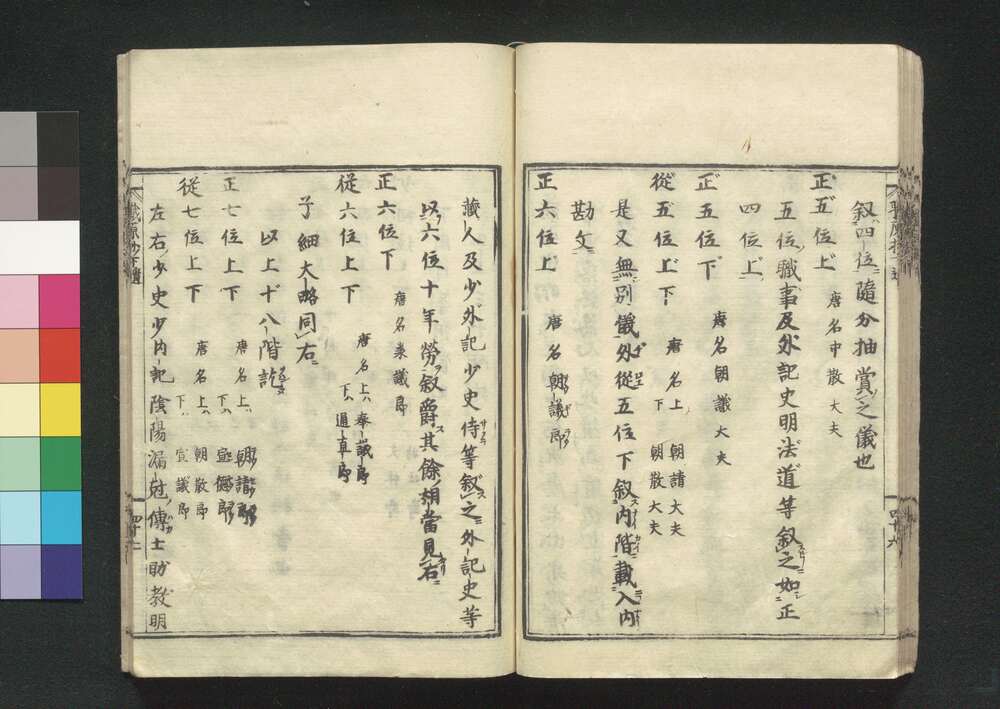 叙四位隨分抽賞之儀也
正五位上 唐名中散大夫
五位職事及外記史明法道等叙之如正
四位上
正五位下 唐名朝議大夫
從五位上下 唐名上朝請大夫下朝散大夫
是又無別儀外從五位下叙内階載入内
勘文
正六位上 唐名朝議郎
議人及少外記少史侍等叙之外記史等
以六位十年勞叙爵其餘相當見右
正六位下 唐名承議郎
從六位上下 唐名上ハ奉議郎下ハ通直郎
子細大略同右
以上十八階訖
正七位上下 唐名上ハ朝請郎下ハ宣德郎
從七位上下 唐名上ハ朝散郎下ハ宣議郎
左右少史少内記陰陽漏尅博士助教明